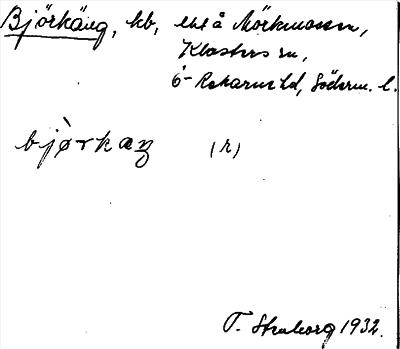 Björkäng, hb, ekt å Mörkmossen,
Klosters sn,
Ö-Rekarne hd, Söderm. l.
bjòrkæŋ (r)
T. Struborg 1932.